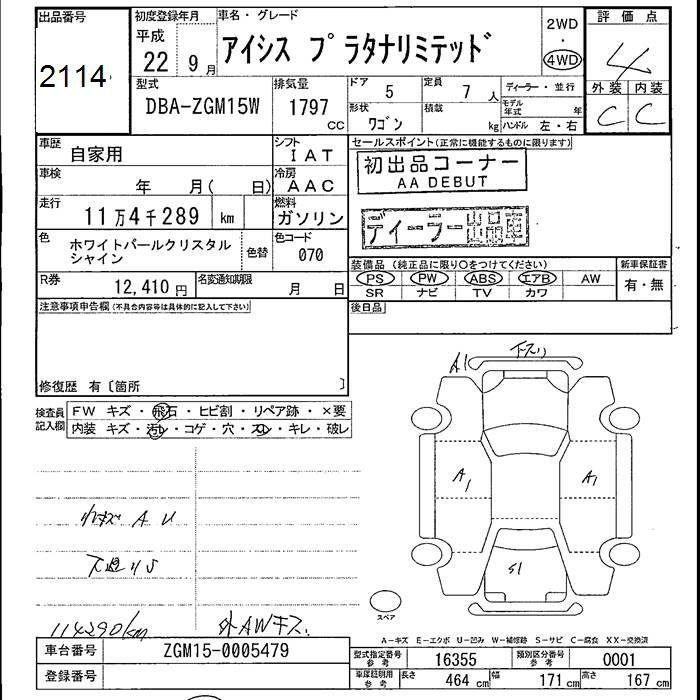 出品番号
2114
初度登録年月
平成
22 9月
車名・グレード
アイシス プラタナリミテッド
2WD
・
4WD
評価点
4
外装 内装
C C
型式
DBA-ZGM15W
排気量
1797
cc
ドア
5
定員
7 人
ディーラー・並行
形状
ワゴン
積載
kg
モデル年式
年
ハンドル 左・右
車歴
自家用
シフト
IAT
車検
年 月( 日)
冷房
AAC
走行
11万4千289 km
燃料
ガソリン
色
ホワイトパールクリスタル
シャイン
色替
色コード
070
R券
12,410 円
名変通知期限
月 日
セールスポイント(正常に機能するものに限ります)
初出品コーナー
AA DEBUT
ディーラー出品車
装備品(純正品に限り○をつけてください)
PS PW ABS エアB AW
SR ナビ TV カワ
新車保証書
有・無
後日品
注意事項申告欄(不具合内容等は具体的に記入して下さい)
修復歴 有〔箇所 〕
検査員
記入欄
FW キズ・飛石・ヒビ割・リペア跡・×要
内装 キズ・汚レ・コゲ・穴・スレ・キレ・破レ
小キズ A U
下廻りS
114290km
外AWキズ.
A1
下スリ
A1
A1
S1
スペア
A-キズ E-エクボ U-凹み W-補修跡 S-サビ C-腐食 XX-交換済
車台番号
ZGM15-0005479
登録番号
型式指定番号
参考
16355
類別区分番号
参考
0001
車庫証明用
参考
長さ
464 cm
幅
171 cm
高さ
167 cm